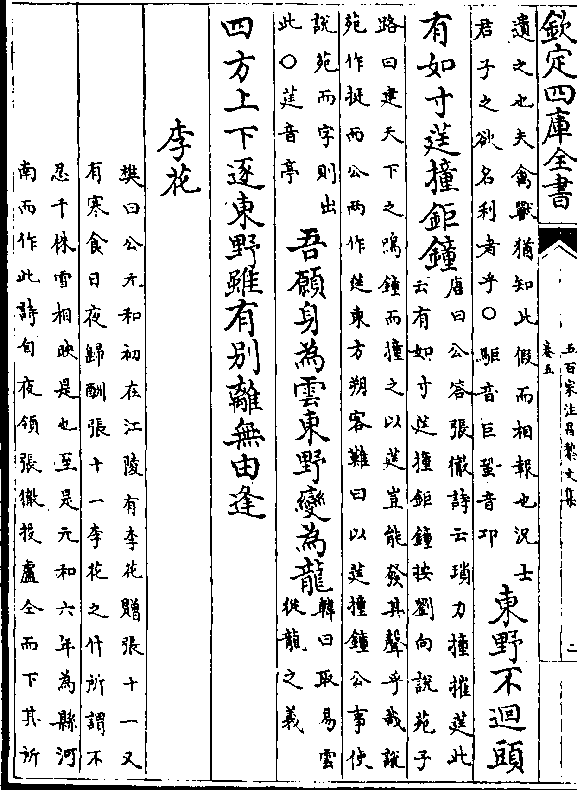 欽定四庫全書
五百家注昌黎文集
卷五
二
遺之也夫禽獸猶知此假而相報也況士
君子之欲名利者乎〇駏音巨蛩音邛
東野不迴頭
有如寸莛撞鉅鐘
唐曰公答張徹詩云瑣力撞摧莛此
云有如寸莛撞鉅鐘按劉向說苑子
路曰建天下之鳴鐘而撞之以莛豈能發其聲乎哉說
苑作挺而公两作莛東方朔客難曰以莛撞鐘公事使
說苑而字則出
此〇莛音亭
吾願身為雲東野變為龍
韓曰取易雲
從龍之義
四方上下逐東野雖有别離無由逢
李花
樊曰公元和初在江陵有李花贈張十一又
有寒食日夜歸酬張十一李花之什所謂不
忍千株雪相映是也至是元和六年為縣河
南而作此詩旬夜領張徹投盧仝而下其所